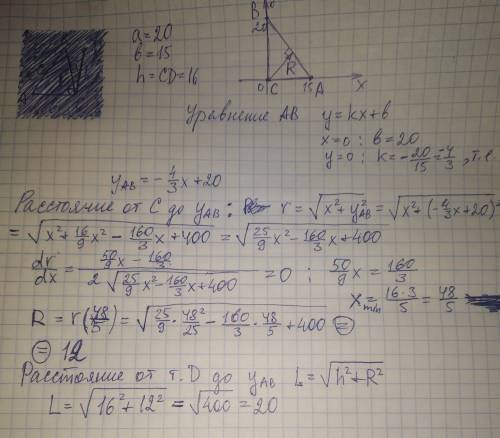 a=20
b=15
h=CD=16
B
20
R
0 C 15 A X
Уравнение AB y=kx+b
x=0 : b=20
y=0 : k=-20/15=-4/3, т.е.
y_AB=-4/3x+20
Расстояние от C до y_AB: r=√(x²+y²_AB)=√(x²+(-4/3x+20)²
=√(x²+16/9x²-160/3x+400)=√(25/9x²-160/3x+400)
dr/dx=(50/9x-160/3)/(2√(25/9x²-160/3x+400))=0 ; 50/9x=160/3
x_min=16·3/5=48/5
R=r(48/5)=√(25/9·48²/25-160/3·48/5+400)=
=12
Расстояние от т. D до y_AB L=√(h²+R²)
L=√(16²+12²)=√400=20